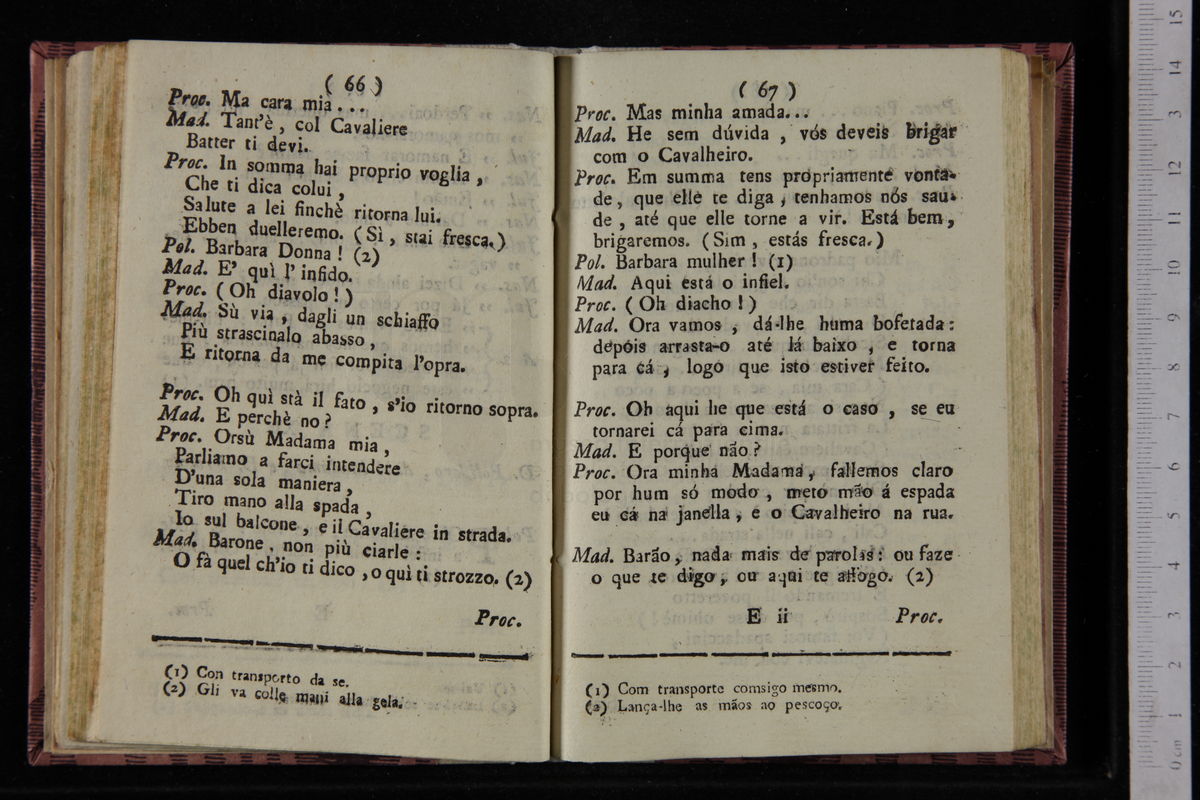 ( 66 )
Proc. Ma cara mia...
Mad. Tant'è, col Cavaliere
Batter ti devi.
Proc. In somma hai proprio voglia,
Che ti dica colui,
Salute a lei finchè ritorna lui.
Ebben duelleremo. (Sì, stai fresca.)
Pol. Barbara Donna! (2)
Mad. E' quì l'infido.
Proc. (Oh diavolo!)
Mad. Sù via, dagli un schiaffo
Più strascinalo abasso,
E ritorna da me compita l'opra.
Proc. Oh quì stà il fato, s'io ritorno sopra.
Mad. E perchè no?
Proc. Orsù Madama mia,
Parliamo a farci intendere
D'una sola maniera,
Tiro mano alla spada,
Io sul balcone, e il Cavaliere in strada.
Mad. Barone, non più ciarle:
O fà quel ch'io ti dico, o quì ti strozzo. (2)
Proc.
(1) Con transporto da se.
(2) Gli va colle mani alla gela.
( 67 )
Proc. Mas minha amada...
Mad. He sem dúvida, vós deveis brigar
com o Cavalheiro.
Proc. Em summa tens propriamente vonta-
de, que elle te diga, tenhamos nós sau-
de, até que elle torne a vir. Está bem,
brigaremos. (Sim, estás fresca.)
Pol. Barbara mulher! (1)
Mad. Aqui está o infiel.
Proc. (Oh diacho!)
Mad. Ora vamos, dá-lhe huma bofetada:
depóis arrasta-o até lá baixo, e torna
para cá, logo que isto estiver feito.
Proc. Oh aqui he que está o caso, se eu
tornarei cá para cima.
Mad. E porque não?
Proc. Ora minha Madama, fallemos claro
por hum só modo, meto mão á espada
eu cá na janella, e o Cavalheiro na rua.
Mad. Barão, nada mais de parolas: ou faze
o que te digo, ou aqui te affogo. (2)
E ii Proc.
(1) Com transporte comsigo mesmo.
(2) Lança-lhe as mãos ao pescoço.
0 cm 1 2 3 4 5 6 7 8 9 10 11 12 13 14 15